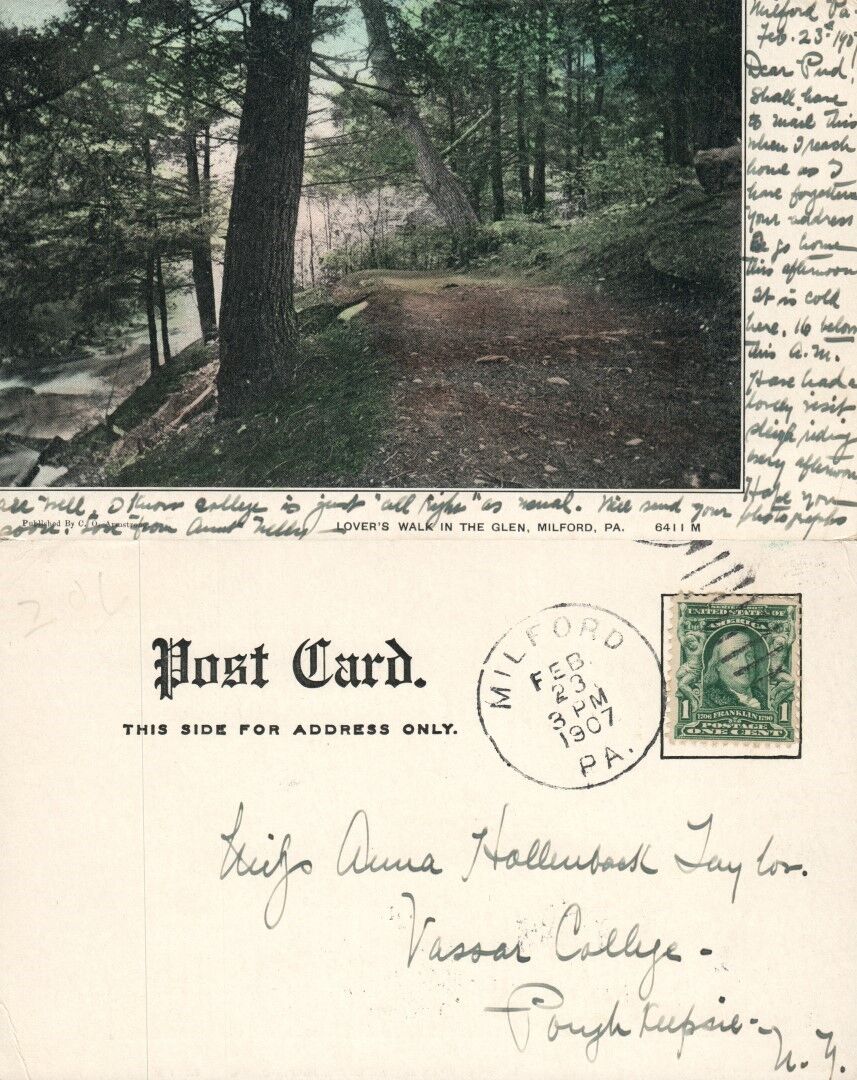 Milford Pa.
Feb. 23d 1907
Dear Pud,
Shall have
to mail this
when I reach
home as I
have forgotten
your address
go home
this afternoon
It is cold
here. 16 below
this A.M.
Have had a
lovely visit
sleigh riding
every afternoon
Hope you
are well, I know college is just "all right" as usual. Will send your photographs
soon. Love from Aunt Nelly
Published By C. O. Armstrong
LOVER'S WALK IN THE GLEN, MILFORD, PA. 6411 M
Post Card.
THIS SIDE FOR ADDRESS ONLY.
MILFORD
FEB.
23
3 PM
1907
PA.
SERIES 1902
UNITED STATES OF
AMERICA
1 1706 FRANKLIN 1790 1
POSTAGE
ONE CENT
Miss Anna Hollenback Taylor.
Vassar College -
Poughkeepsie -
N.Y.